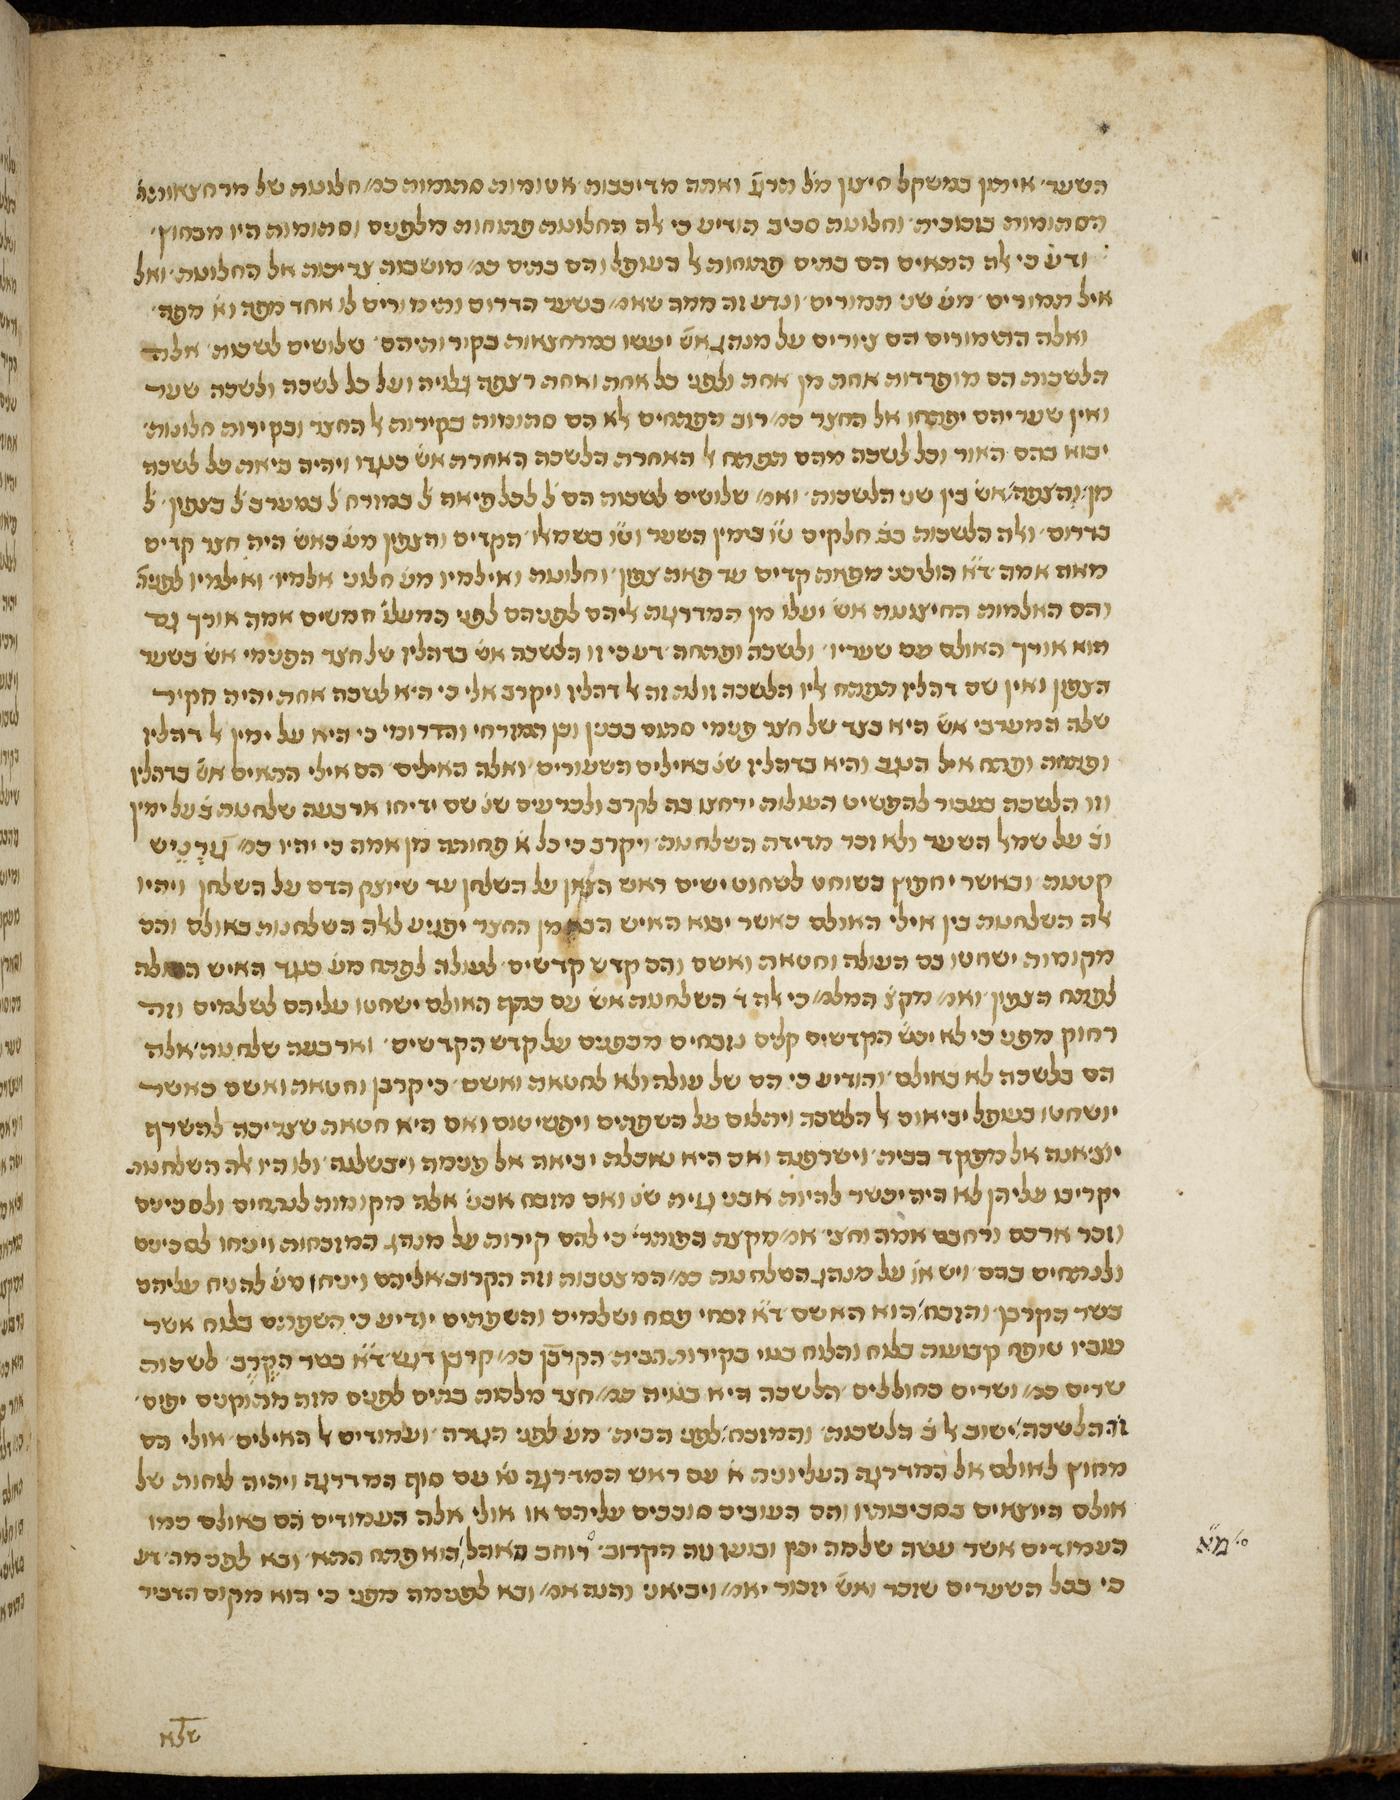 השער איתון במשקל חיצון מל תרע ואתה מדיבבות אטומות סתומות כמ׳ חלונות של מרחצאות
הסתומות בזכוכית וחלונות סביב הודיע כי לה החלונות פתוחות מלפנים וסתומות היו מבחוץ
ודע כי לה התאים הם בתים פתוחות ל העופל והם בתים כמ׳ מושבות צריכות אל החלונות ואל
איל תמורים מע שני תמורים ונדע זה ממה שאמ׳ בשער הדרום ותימורים לו אחד מפה וא׳ מפה
ואלה התימורים הם ציורים על מנהג אש יעשו במרחצאות בקירותיהם שלושים לשכות אלה
הלשכות הם מופרדות אחת מן אחת ולפני כל אחת ואחת רצפה בנויה ועל כל לשכה ולשכה שער
ואין שעריהם יפתחו אל החצר כמ׳ רוב הפתחים לא הם סתומות בקירות ל החצר ובקירות חלונות
יבוא בהם האור וכל לשכה מהם תפתח ל האחרת הלשכה האחרת אש כנגדו ויהיה ביאת כל לשכה
מן הרצפה אש בין שני הלשכות ואמ׳ שלושים לשכות הם ל לכל פיאה ל במזרח ל במערב ל בצפון ל
בדרום ולה הלשכות בב חלקים טו בימין השער וטו בשמאלו הקדים והצפון מע כאש היה חצר קדים
מאת אמה ר״א הוליכני מפאת קדים עד פאת צפון וחלונות ואילמיו מע חלוני אלמיו ואילמיו לפניה
והם האולמות החיצונות אש יעלו מן המדרגות ליהם לפניהם לפני המעלו חמשים אמה אורך גם
הוא אורך האולם עם שעריו ולשכה ופתחה דע כי זו הלשכה אש בדהליז של חצר הפנימי אש בשער
הצפון ואין שם דהליז תפתח ליו הלשכה זולת זה ל דהליז ויקרב אלי כי היא לשכה אחת יהיה הקיר
שלה המערבי אש היא בצד של חצר פנימי סתום בבנין וכן המזרחי והדרומי כי היא על ימין ל דהליז
ופתחה ופתח איל הנגב והיא בדהליז שנ׳ באילים השעורים ואלה האילים הם אילי התאים אש בדהליז
וזו הלשכה בעבור להפשיט העולות ירחצו בה לקרב ולכרעים שנ׳ שם ידיחו ארבעה שלחנות ב׳ על ימין
וב׳ על שמאל השער ולא זכר מדידה השלחנות ויקרב כי כל א׳ פחותה מן אמה כי יהיו כמ׳
קטנות וכאשר יחפוץ השוחט לשחוט ישים ראש הצאן על השלחן עד שיוצק הדם על השלחן ויהיו
לה השלחנות בין אילי האולם כאשר יבוא האיש הבא מן החצר יפגיע ללה השלחנות באולם והם
מקומות ישחטו בם העולה וחטאת ואשם והם קדש קדשים לעולה לפתח מע כנגד האיש העולה
לפתח הצפון ואמ׳ מקצ׳ המלמ׳ כי לה ד׳ השלחנות אש עם כתף האולם ישחטו עליהם לשלמים וזה
רחוק מפני כי לא יכש׳ הקדשים קלים נזבחים מבפנים על קדש הקדשים וארבעה שלחנות אלה
הם בלשכה לא באולם והודיע כי הם של עולה ולא לחטאת ואשם כי קרבן וחטאת ואשם כאשר
יושחטו בעופל יביאום ל הלשכה ויתלום על השפתים ויפשיטום ואם היא חטאת שצריכה להשרף
יוציאנה אל מפקד בבית וישרפנה ואם היא נאכלת יביאה אל פנימה ויבשלנה ולו היו לה השלחנות
יקריבו עליהן לא היה יכשר להיות אבני גזית שנ׳ ואם מזבח אבני אלה מקומות לנתחים ולסכינים
וזכר ארכם ורחבם אמה וחצי אמ׳ מקצת הפותרי׳ כי להם קירות על מנהג המזבחות ויניחו הסכינים
ולנתחים בהם ויש או׳ על מנהג השלחנות כמ׳ המצטבות וזה הקרוב אליהם ויניחו מע להניח עליהם
בשר הקרבן והזבח הוא האשם ר״א זבחי פסח ושלמים והשפתים יודיע כי השפתים בלוח אשר
עוביו טופח קבועות בלוח והלוח בנוי בקירות הבית הקרבן כמ׳ קרבן דגש ר״א בשר הקרב לשכות
שרים כמ׳ ושרים כחוללים הלשכה היא בנויה כמ׳ חצר מלכות בתים לפנים מזה מתוקנים יפים
זה הלשכה ישוב ל ב׳ הלשכות והמזבח לפני הבית מע לפני העזרה ועמודים ל האילים אולי הם
מחוץ לאולם אל המדרגה העליונית א׳ עם ראש המדרגה וא׳ עם סוף המדרגה ויהיה לוחות של
אולם היוצאים בסביבותיו והם העובים סובבים עליהם או אולי אלה העמודים הם באולם כמו
העמודים אשר עשה שלמה יכין ובועז וזה הקרוב רוחב האהל הוא פתח התא ובא לפנימה דע
כי בכל השערים שזכר ואש יזכור יאמ׳ ויביאני והנה אמ׳ ובא לפנימה מפני כי הוא מקום הדביר
מ״א
שלא